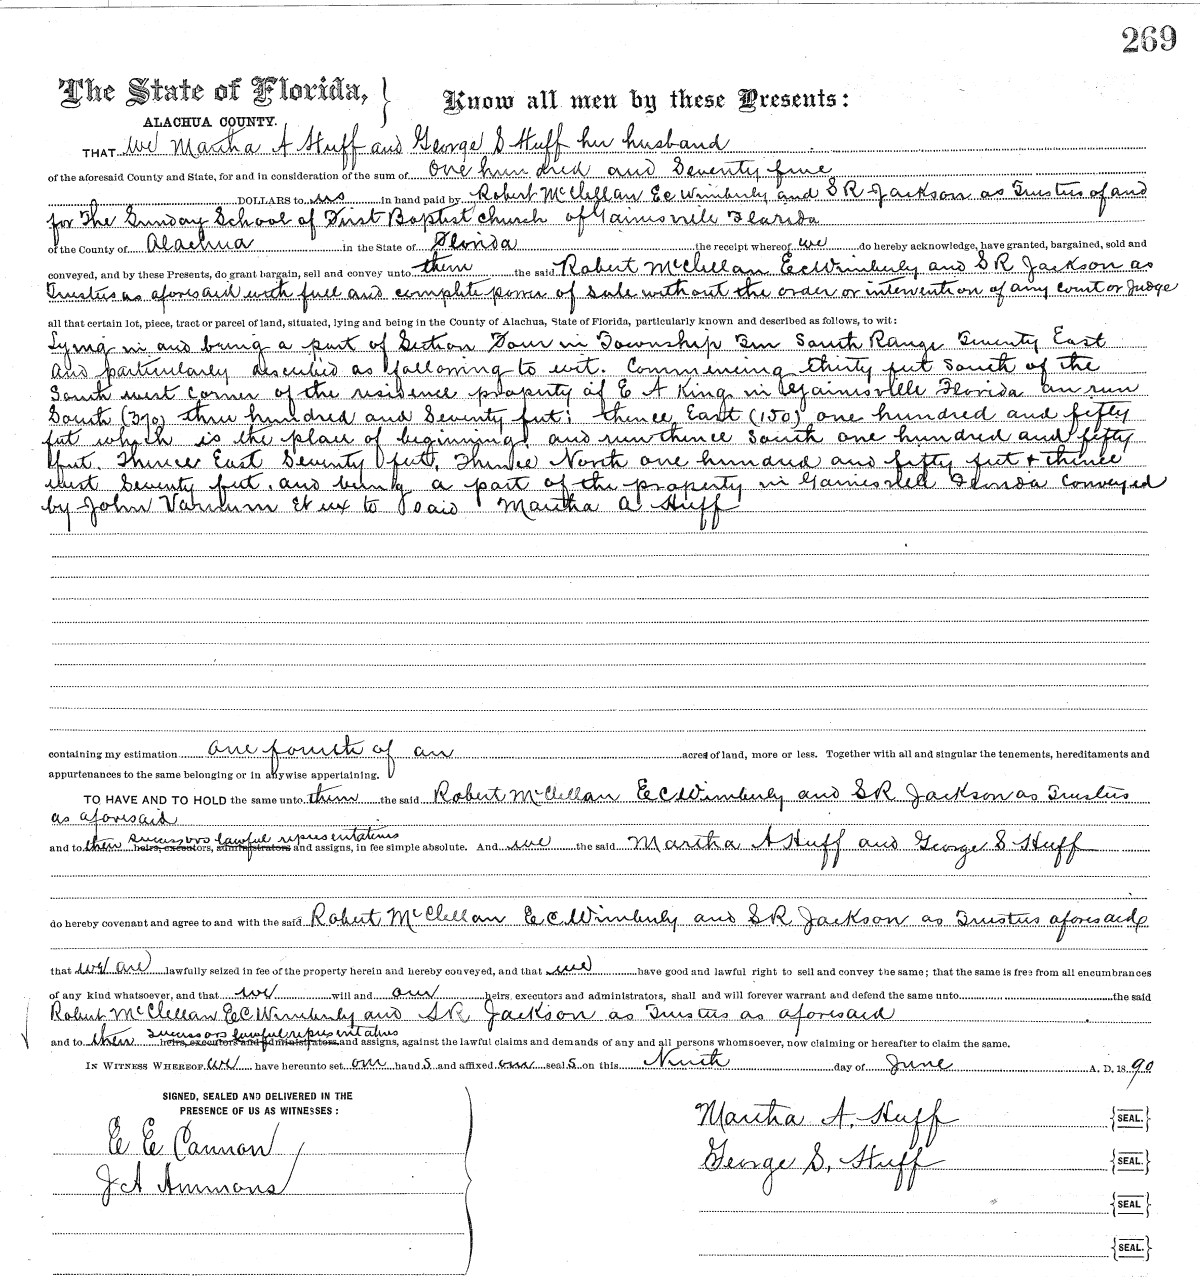 269
The State of Florida, } Know all men by these Presents:
ALACHUA COUNTY.
THAT we Martha A Huff and George S Huff her husband
of the aforesaid County and State, for and in consideration of the sum of One hundred and Seventy five
DOLLARS to us in hand paid by Robert McClellan E C Wimberly and S R Jackson as Trustees of and
for The Sunday School of First Baptist church of Gainesville Florida
of the County of Alachua in the State of Florida the receipt whereof we do hereby acknowledge, have granted, bargained, sold and
conveyed, and by these Presents, do grant bargain, sell and convey unto them the said Robert McClellan E C Wimberly and S R Jackson as
Trustees as aforesaid with full and complete power of sale without the order or intervention of any court or Judge
all that certain lot, piece, tract or parcel of land, situated, lying and being in the County of Alachua, State of Florida, particularly known and described as follows, to wit:
Lying in and being a part of Section Four in Township Ten South Range Twenty East
and particularly described as following to wit. Commencing thirty feet South of the
South west corner of the residence property of E A King in Gainesville Florida an run
South (370) three hundred and Seventy feet; thence East (150) one hundred and fifty
feet which is the place of beginning, and run thence South one hundred and fifty
feet. Thence East Seventy feet, Thence North one hundred and fifty feet + thence
west Seventy feet. and being a part of the property in Gainesville Florida conveyed
by John Varnum Et ux to said Martha A Huff
containing my estimation one fourth of an acres of land, more or less. Together with all and singular the tenements, hereditaments and
appurtenances to the same belonging or in anywise appertaining.
TO HAVE AND TO HOLD the same unto them the said Robert McClellan E C Wimberly and S R Jackson as Trustees
as aforesaid
successors lawful representatives
and to their heirs, executors, administrators and assigns, in fee simple absolute. And we the said Martha A Huff and George S Huff
do hereby covenant and agree to and with the said Robert McClellan E C Wimberly and S R Jackson as Trustees aforesaid
that we are lawfully seized in fee of the property herein and hereby conveyed, and that we have good and lawful right to sell and convey the same; that the same is free from all encumbrances
of any kind whatsoever, and that we will and our heirs, executors and administrators, shall and will forever warrant and defend the same unto the said
Robert McClellan E C Wimberly and S R Jackson as Trustees as aforesaid
successors lawful representatives
and to their heirs, executors and administrators and assigns, against the lawful claims and demands of any and all persons whomsoever, now claiming or hereafter to claim the same.
IN WITNESS WHEREOF, we have hereunto set our hand s and affixed our seal s on this Ninth day of June A. D. 18 90
SIGNED, SEALED AND DELIVERED IN THE
PRESENCE OF US AS WITNESSES:
E E Cannon
J A Ammons
Martha A. Huff {SEAL.}
George S. Huff {SEAL.}
{SEAL}
{SEAL.}